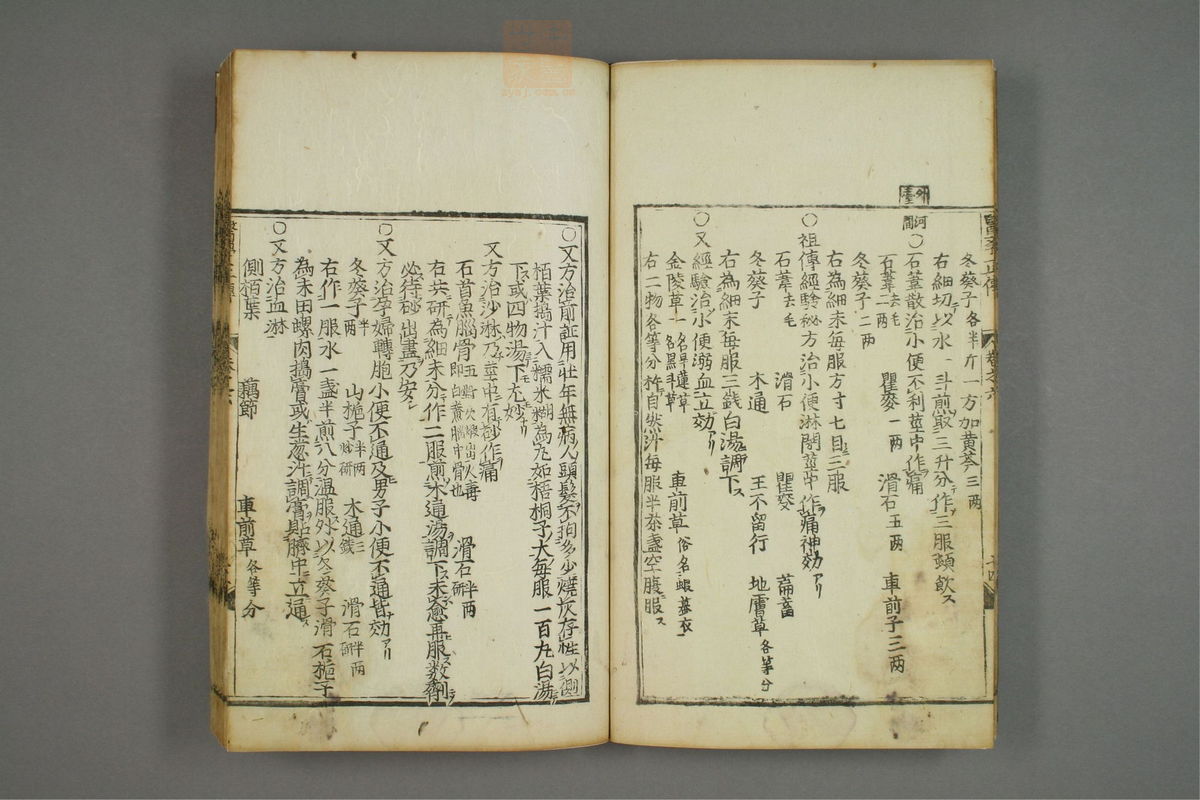 外臺
冬葵子各半斤 一方加黄芩三两
右細切以水一斗煎取三升分作三服頓飲ス
河間
○石葦散治小便不利莖中作痛
石葦去毛二两 瞿麥一两 滑石五两 車前子三两
冬葵子二两
右為細末每服方寸七日三服
○祖傳經驗秘方治小便淋閉莖中作痛神効アリ
石葦去毛 滑石 瞿麥 萹蓄
冬葵子 木通 王不留行 地膚草各等分
右為細末每服三錢白湯調下ス
○又經驗治小便溺血立効アリ
金陵草一名旱蓮草一名黑斗草 車前草俗名蝦蟇衣
右二物各等分杵自然汁每服半茶盞空腹服ス
○又方治前証用壮年無病人頭髮不拘多少燒灰存性以側
栢葉搗汁入糯米糊為丸如梧桐子大每服一百丸白湯
下或四物湯下尤妙
又方治沙淋乃莖中有砂作痛
石首魚腦骨五對火煅出火毒即白鯗腦中骨也 滑石半两研
右共研為細末分作二服煎木通湯調下未愈再服数劑
必待砂出盡乃安
○又方治孕婦轉胞小便不通及男子小便不通皆効アリ
冬葵子半两 山梔子半两炒研 木通三錢 滑石半两研
右作一服水一盞半煎八分温服外以冬葵子滑石梔子
為末田螺肉搗膏或生葱汁調膏貼臍中立通
○又方治血淋
側栢葉 藕節 車前草各等分